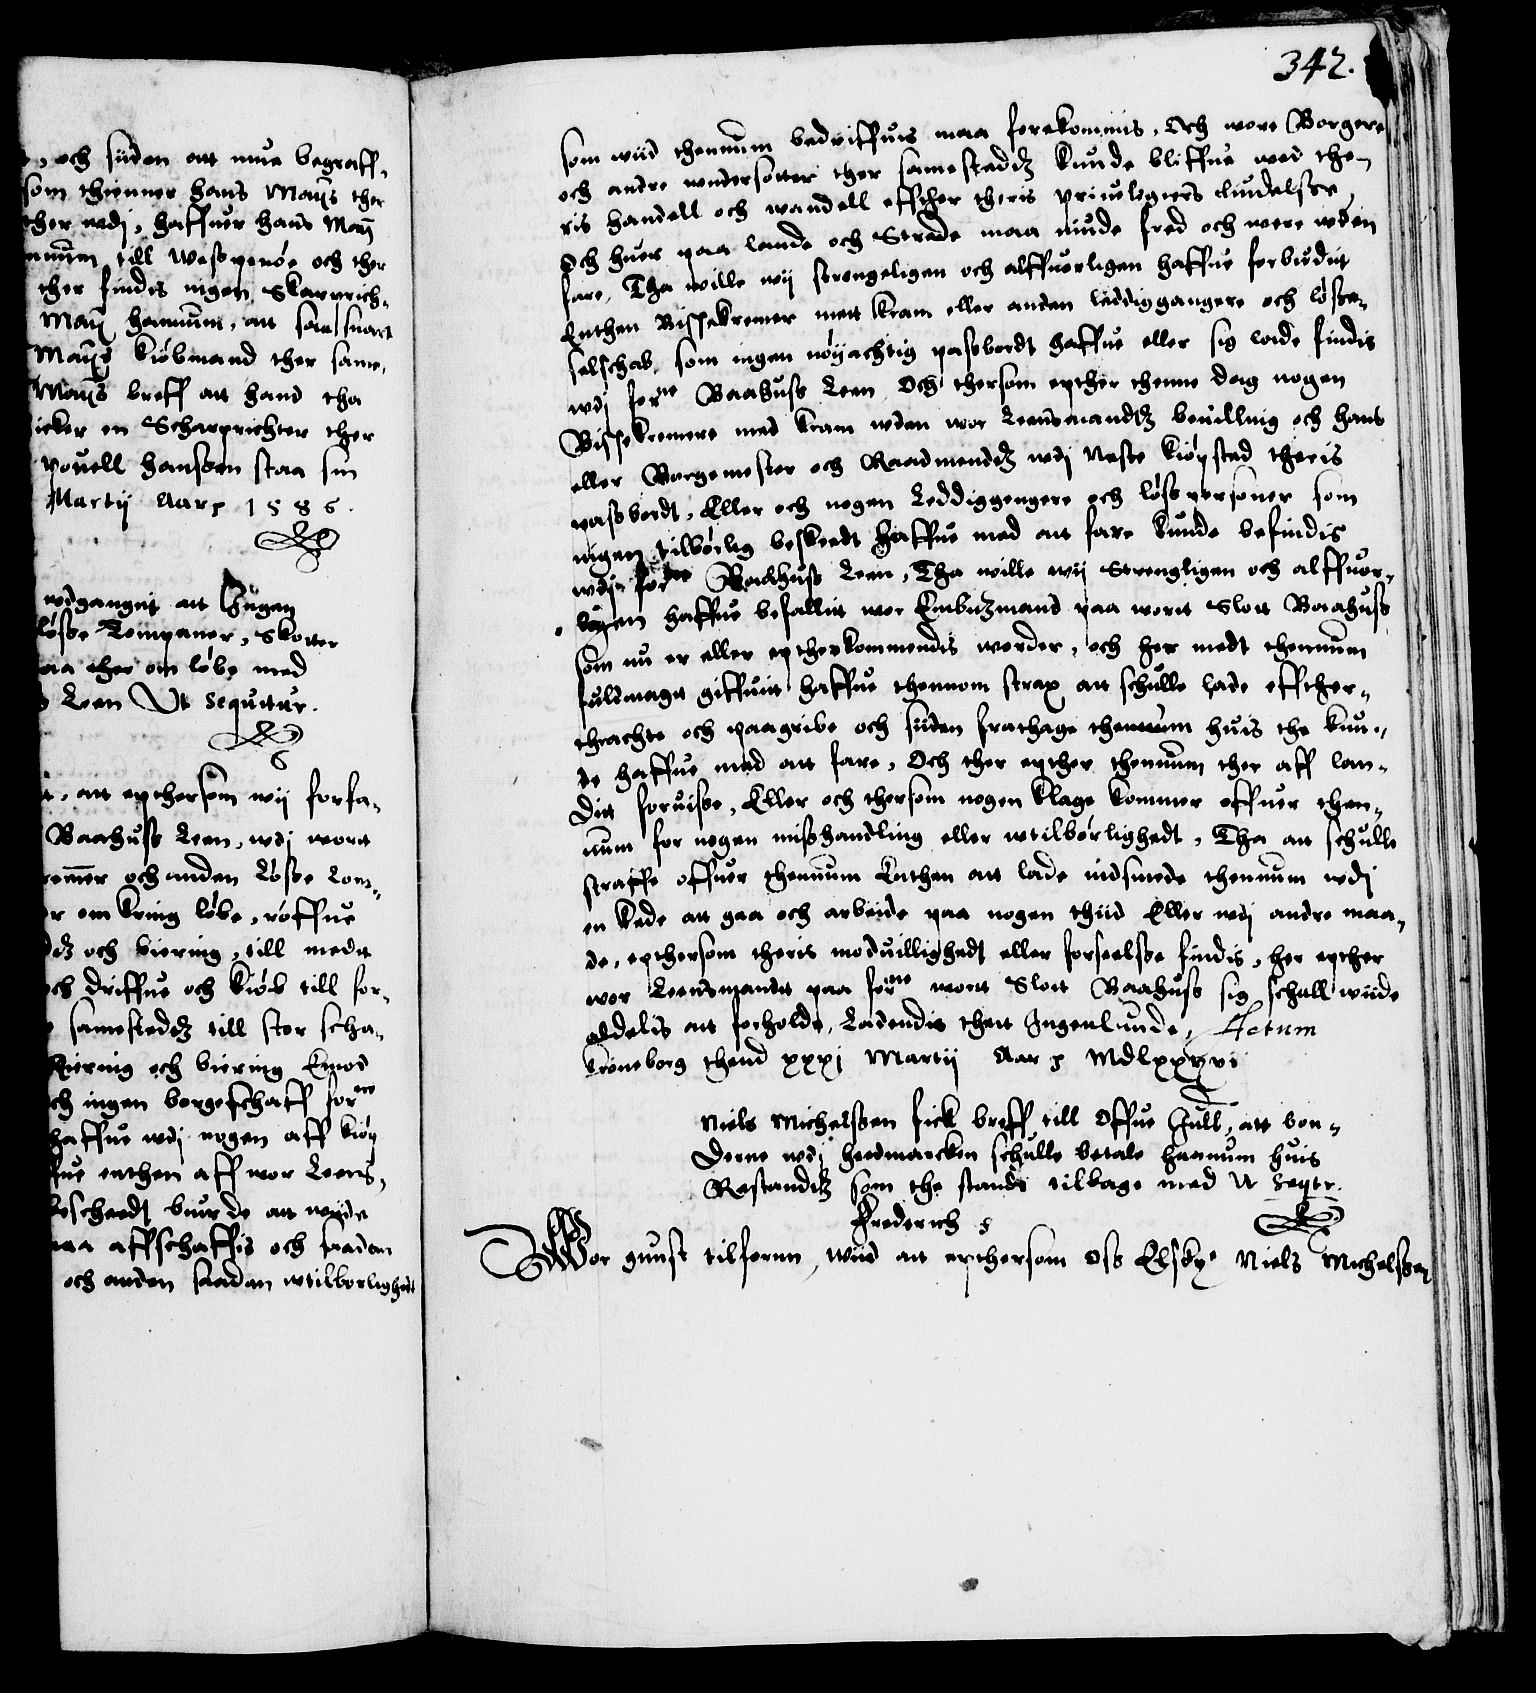 och siiden att mue begraff,
som thienner hans Mayts ther
ther wdj, haffuer hans May
till Westpenøe och ther
ther findis ingen Skarprich-
May hannum, att saa snart
Mayts kiøbmand ther same,
Mayts breff att hand tha
en Scharprichter ther
povell hanssen staa sin
Martij Aar 1586.
wdgangit att Ingen
løsse Companer, Skotter
maa ther om løbe med
Leen Ut sequitur.
att epthersom wij forfa-
Baahuss Leen, wdj wort
och anden Løsse Com-
om kring løbe, røffue
och biering, till medt
och driffue och kiøb till for-
samestedtz till stor scha-
Niering och biering Emod
och ingen borgeschaff forne
haffue wdj nogen aff kiøp
enthen aff wor Leens,
bescheedt biurde att wiide
affschaffis och saadan
och anden saadan wtilborlighedt
342.
som wiid thennum bedriffuis maa forekommis, Och wore Borgere
och andre wndersotter ther samestedtz kunde bliffue wed the-
ris handell och wandell effther theris priuilegiers liudelsse,
Och huer paa lande och Strede maa niude fred och were uden
fare, Tha wille wij strengeligen och alffuerligen haffue forbudit
Enthen Bissekremer mett kram eller anden læddiggangere och løsse-
selschab, som ingen nøyachtig passbordt haffue eller sig lade findis
wdj forne Baahuss Leen Och thersom epther thenne dag nogen
Bissekremere med kram wden wor Leensmandtz beuilling och hans
eller Borgemester och Raadmendtz wdj Neste kiøpstad theris
passbordt, Eller och nogen Leddiggengere och løsspersoner som
ingen tilbørlig beskeedt haffue med att fare kunde befindis
wdj forne Baahuss Leen, Tha wille wij Strengligen och alffuer-
ligen haffue befallit wor Embitzmand paa wortt Slott Baahuss
som nu er eller eptherkommendis worder, och her medt thennum
fuldmagt giffuit haffue thennom strax att schulle lade effther-
thrachte och paagribe och siiden frathage thennum huis the kun-
de haffue med att fare, Och ther epther thennum ther aff lan-
dit foruisse, Eller och thersom nogen klage kommer offuer then-
num for nogen misshandling eller wtilbørlighedt, Tha att schulle
straffe offuer thennum Enthen att lade indsmede thennum wdj
en kede att gaa och arbeide paa nogen thiid Eller wdj andre maa-
de, epthersom theris moduillighedt eller forseelsse findis, her epther
wor Leensmandt paa forne wortt Slott Baahuss sig schall wiide
aldelis att forholde, Ladendis thett Ingenlunde, Actum
Croneborg thend xxxj Martij Aar MDlxxxvi
Niels Michelssen fick breff till Offue Jull, att bon-
derne wdj heedmarcken schulle betale hannum huis
Restandtz som the stande tilbage med Ut seqtr.
Frederich
Wor gunst tilforn, wiid att epthersom Oss Elsky Niels Michelssen